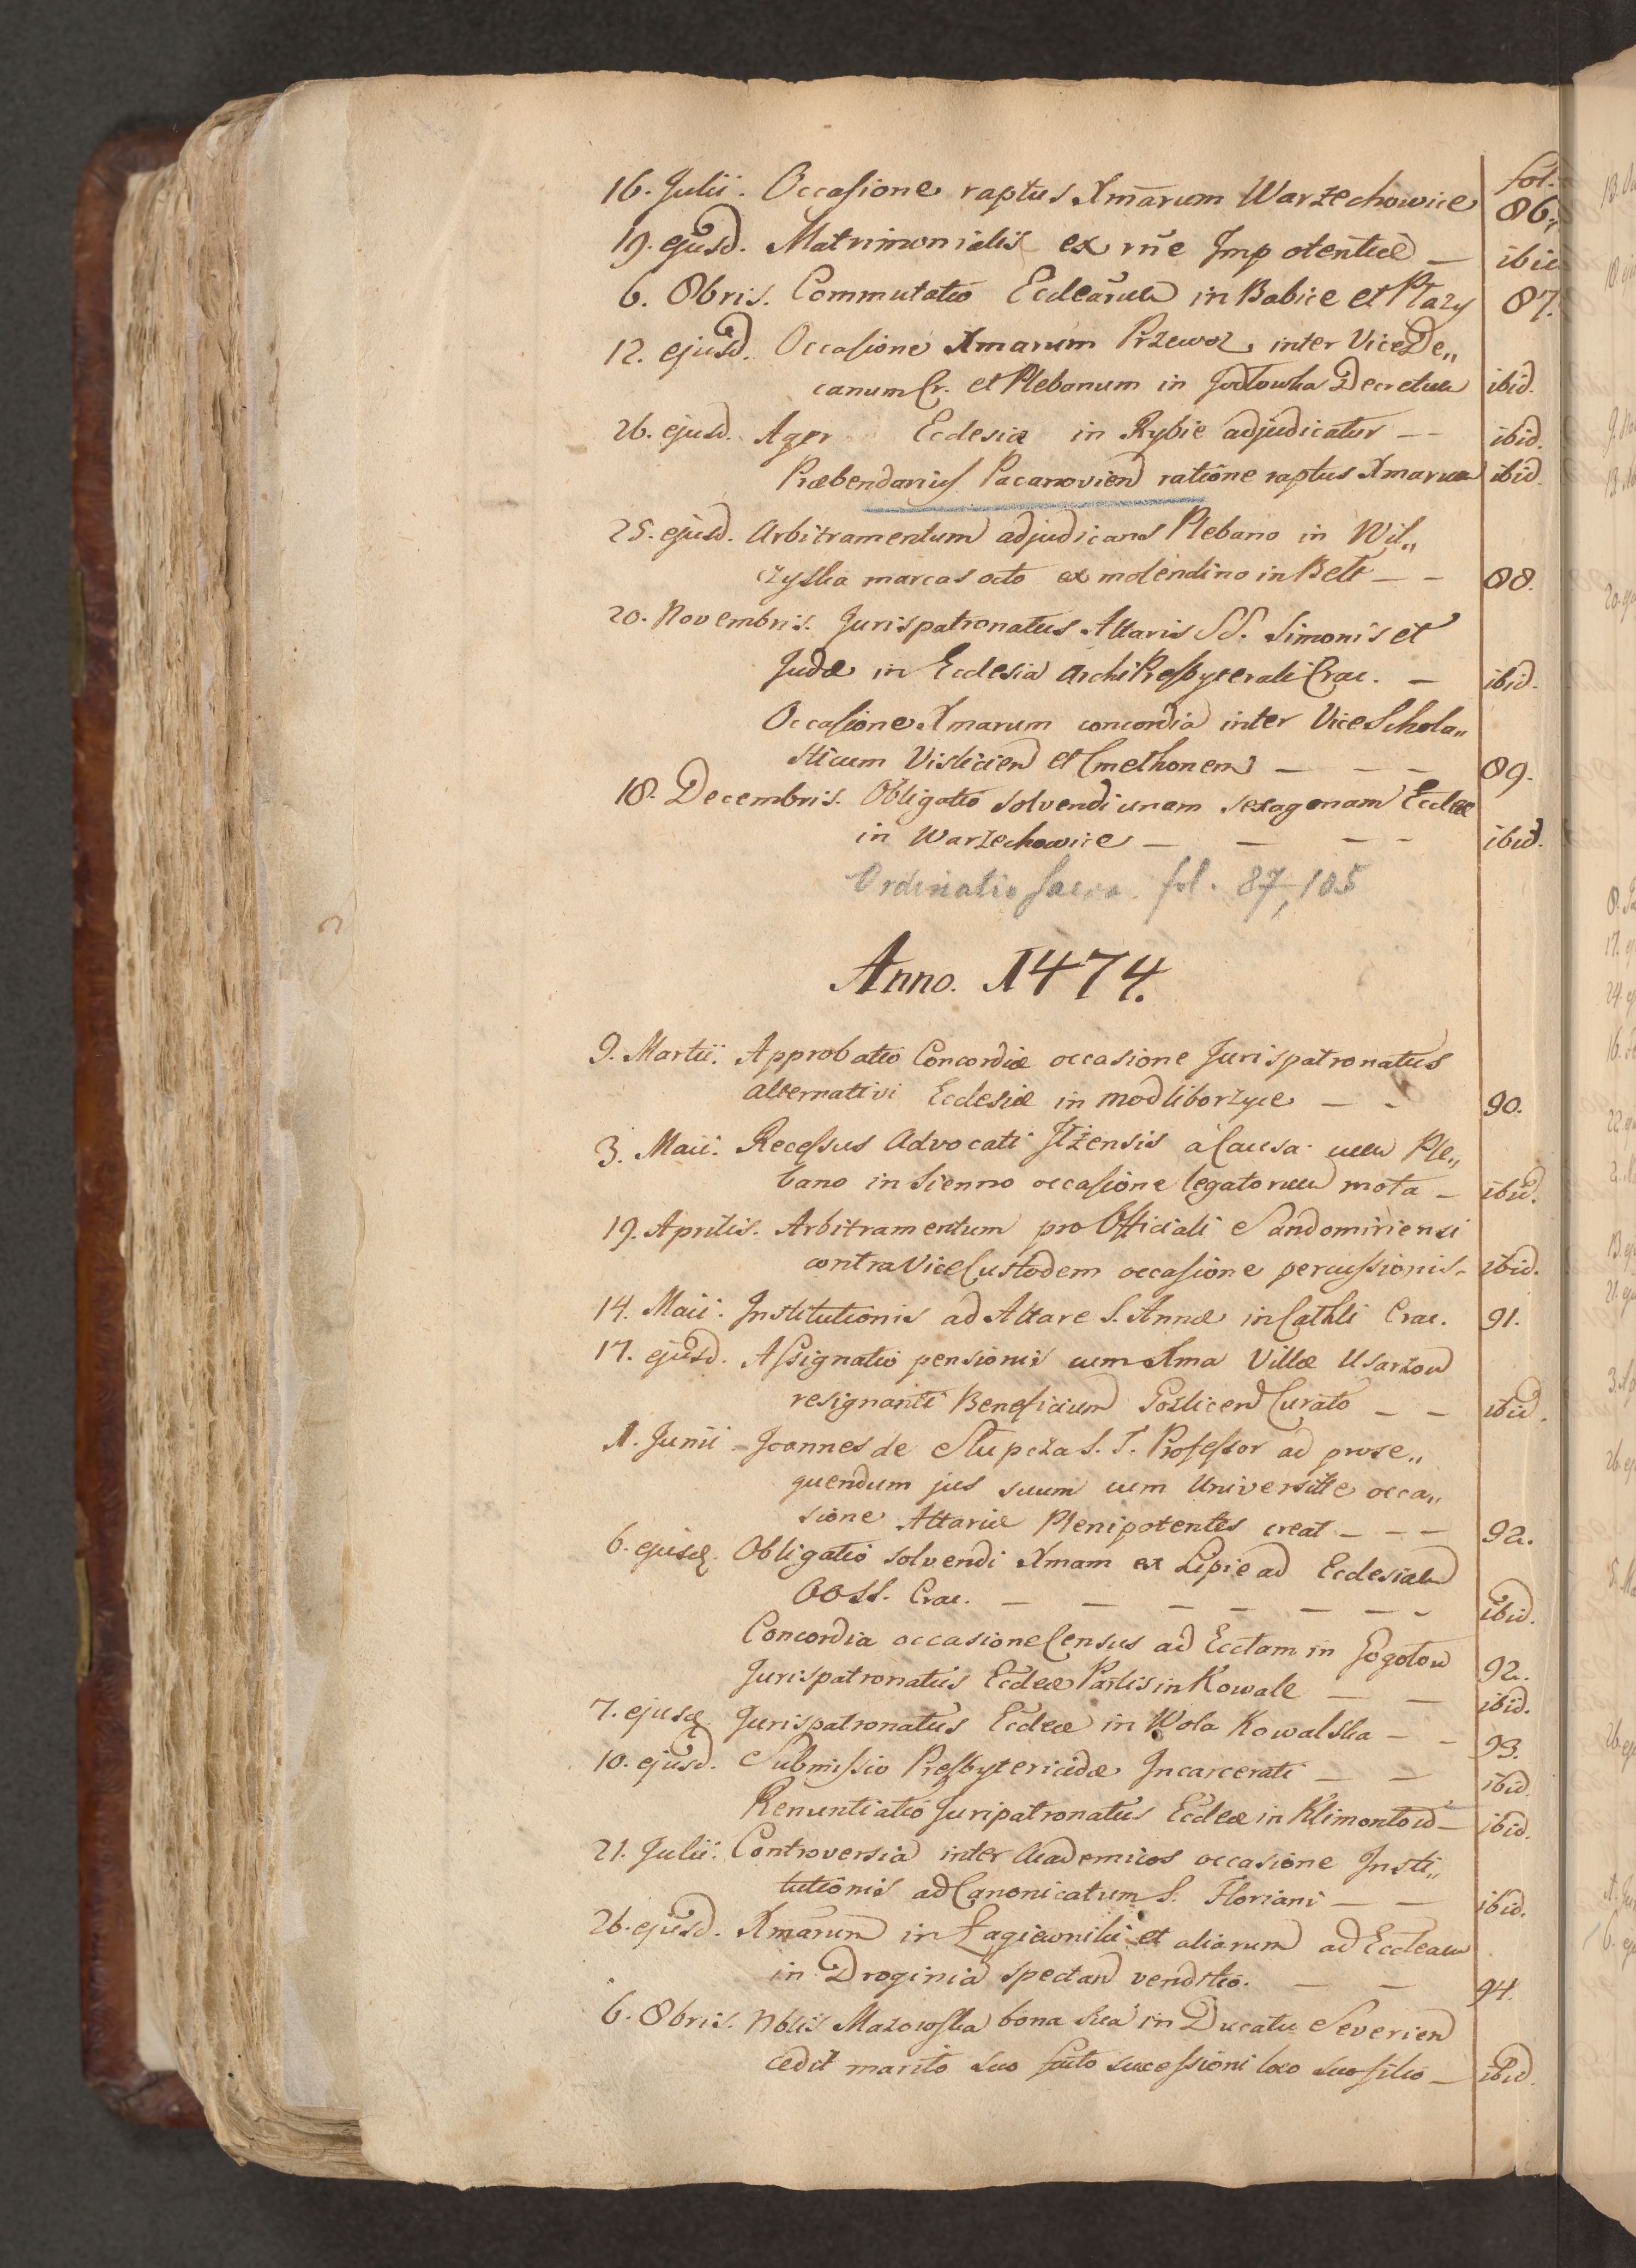 fol.
16. Julii. Occasione raptus Xmarum Warzechowice 86.
19. ejusd. Matrimonialis ex rñe Impotentiæ — ibid
6. 8bris. Commutatio Eccleārum in Babice et Płazy 87.
12. ejusd. Occasione Xmarum Przewoz inter ViceDe„
canum Cr. et Plebanum in Jodłowka Decretum ibid.
26. ejusd. Ager Ecclesiæ in Rybie adjudicatur — — ibid.
Præbendarius Pacanovien ratione raptus Xmarum ibid.
25. ejusd. Arbitramentum adjudicans Plebano in Wil„
czyska marcas octo ex molendino in Belt — — 88.
20. Novembris. Jurispatronatus Altaris SS. Simonis et
Judæ in Ecclesia ArchiPresbyterali Crac. — ibid.
Occasione Xmarum concordia inter ViceSchola„
sticum Vislicien et Cmethonem — — — 89.
18. Decembris. Obligatio solvendi unam sexagenam Eccleæ
in Warzechowice — — — — ibid.
Ordinatio sacra fol. 87, 105
Anno. 1474.
9. Martii. Approbatio Concordiæ occasione Jurispatronatus
alternativi Ecclesiæ in Modliborzyce — — 90.
3. Maii. Recessus Advocati Jłżensis à Causa cum Ple„
bano in Sienno occasione legatorum mota — ibid.
19. Aprilis. Arbitramentum pro Officiali Sandomiriensi
contra ViceCustodem occasione percussionis — ibid.
14. Maii. Institutionis ad Altare S. Annæ in Cathli Crac. 91.
17. ejusd. Assignatio pensionis cum Xma Villæ Usarzow
resignanti Beneficium Gozlicen Curato — — ibid.
1. Junii — Joannes de Słupcza S. T. Professor ad prose„
quendum jus suum cum Universitte occa„
sione Altariæ Plenipotentes creat — — — 92.
6. ejusd. Obligatio solvendi Xmam ex Lipie ad Ecclesiam
OOSS. Crac. — — — — — — — ibid.
Concordia occasione Census ad Ecclam in Gogołow 92.
Jurispatronatus Eccleæ Parlis in Kowale — — ibid.
7. ejusd. Jurispatronatus Eccleæ in Wola Kowalska — — 93.
10. ejusd. Submissio Presbytericidæ Incarcerati — — ibid
Renuntiatio Juripatronatus Eccleæ in Klimontow — ibid.
21. Julii. Controversia inter Academicos occasione Insti„
tutionis ad Canonicatum S. Floriani — — ibid.
26. ejusd. Xmarum in Łagiewniki et aliarum ad Eccleam
in Droginia spectan venditio. — — 94.
6. 8bris. Nblis Mazowska bona sua in Ducatu Severien
cedit marito suo salto successioni loco suo filio — ibid.